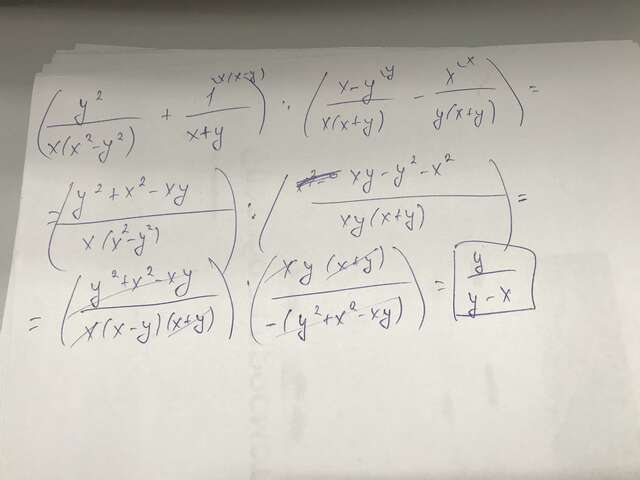 (y²/(x(x²-y²)) + 1^{\x(x-y)}/(x+y)) : ((x-y^{\y})/(x(x+y)) - x^{\x}/(y(x+y))) =
= ((y²+x²-xy)/(x(x²-y²))) : ((xy-y²-x²)/(xy(x+y))) =
= ((y²+x²-xy)/(x(x-y)(x+y))) · (xy(x+y)/(-(y²+x²-xy))) = y/(y-x)